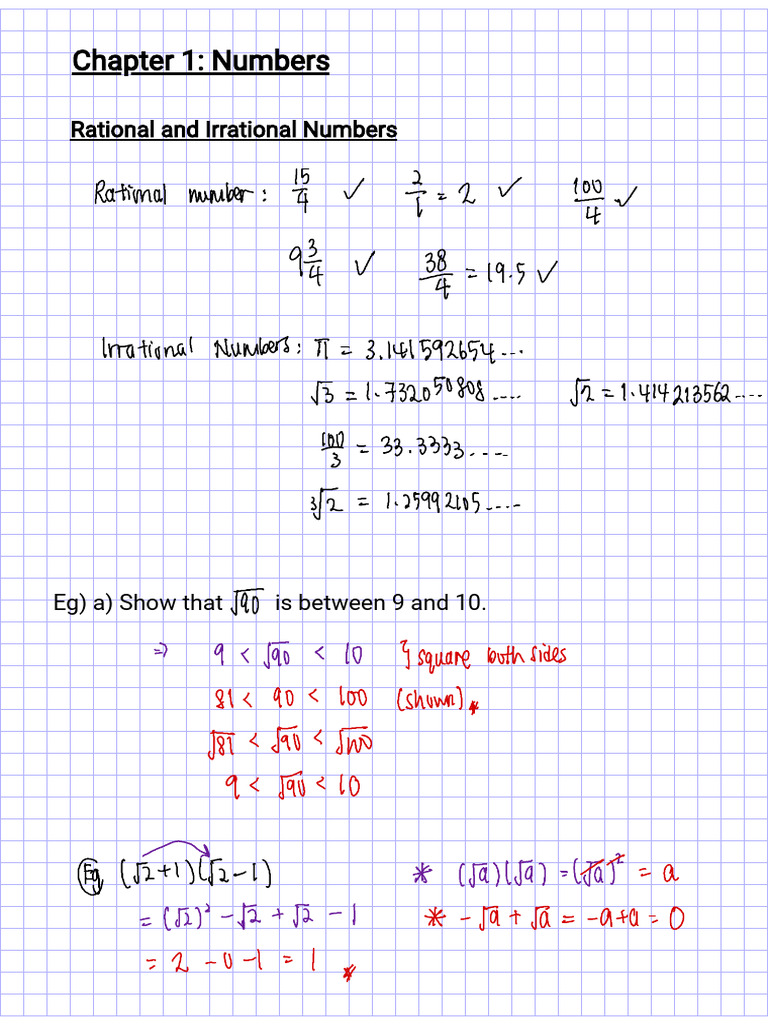 Chapter 1: Numbers
Rational and Irrational Numbers
Rational number: 15/4 ✓ 2/1 = 2 ✓ 100/4 ✓
9 3/4 ✓ 38/4 = 19.5 ✓
Irrational Numbers: π = 3.141592654...
√3 = 1.732050808.... √2 = 1.414213562....
100/3 = 33.3333....
∛2 = 1.25992105....
Eg) a) Show that √90 is between 9 and 10.
⇒ 9 < √90 < 10 } square both sides
81 < 90 < 100 (shown) *
√81 < √90 < √100
9 < √90 < 10
Eg (√2+1)(√2-1) * (√a)(√a) = (√a)² = a
= (√2)² - √2 + √2 - 1 * -√a + √a = -a+a = 0
= 2 - 0 - 1 = 1 *